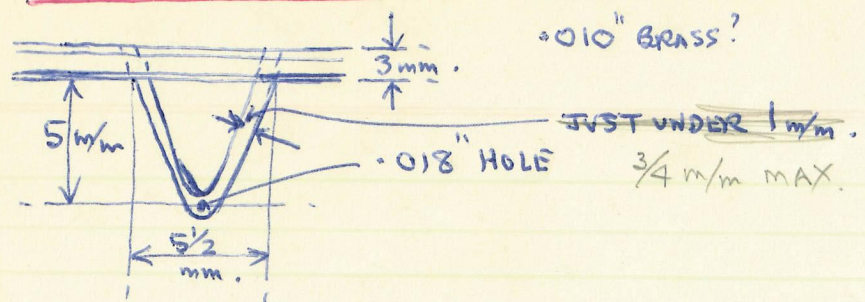 .010" BRASS?
3 mm.
JUST UNDER 1 m/m.
5 m/m
.018" HOLE
3/4 m/m MAX.
5 1/2
mm.